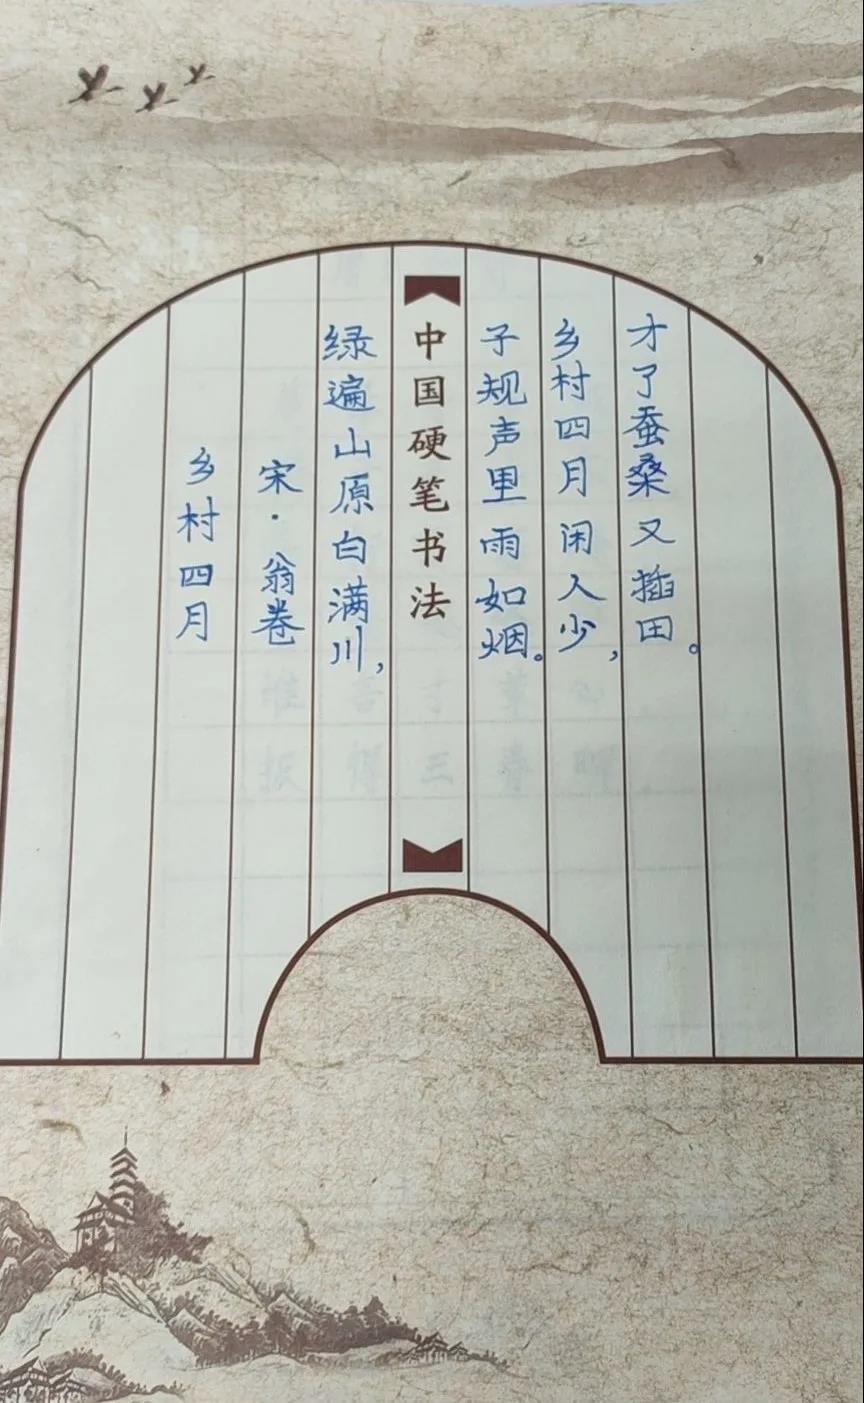 乡村四月
宋·翁卷
绿遍山原白满川，
中国硬笔书法
子规声里雨如烟。
乡村四月闲人少，
才了蚕桑又插田。